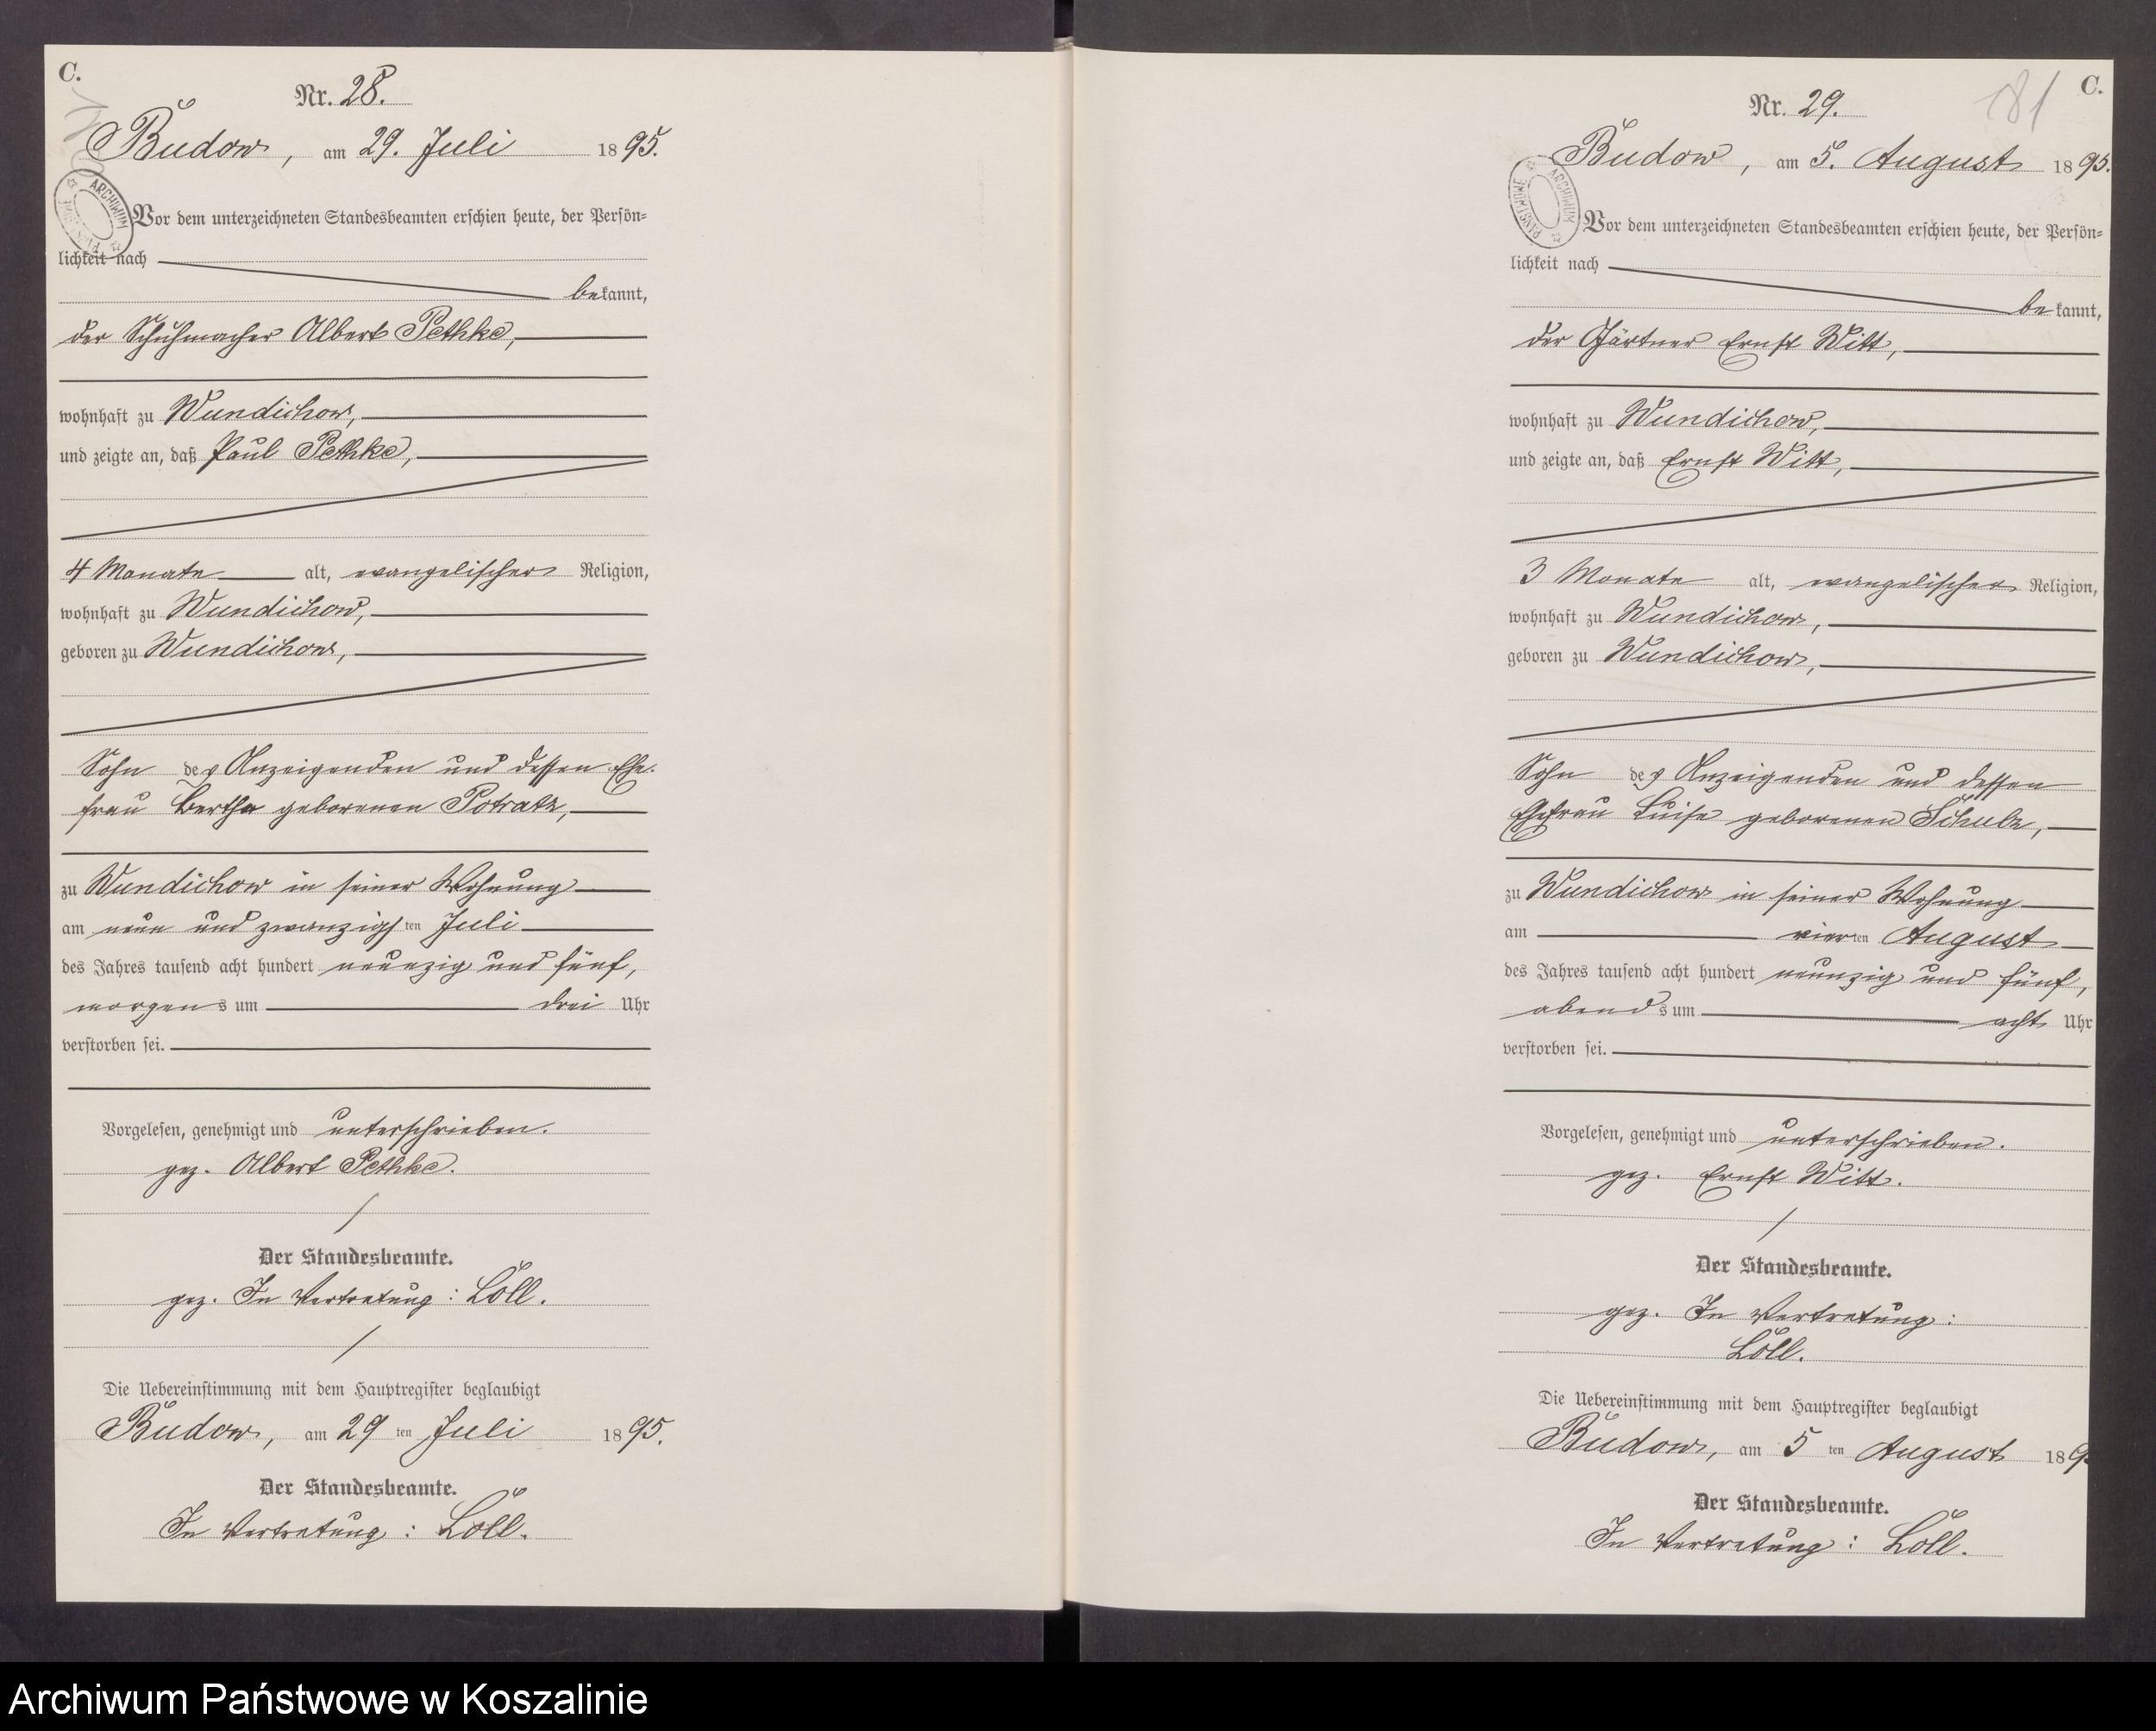 C.
Nr. 28.
Budow, am 29. Juli 1895.
Vor dem unterzeichneten Standesbeamten erschien heute, der Persön=
lichkeit nach
bekannt,
der Schuhmacher Albert Pethke,
wohnhaft zu Wundichow,
und zeigte an, daß Paul Pethke,
4 Monate alt, evangelischer Religion,
wohnhaft zu Wundichow,
geboren zu Wundichow,
Sohn des Anzeigenden und dessen Ehe-
frau Bertha geborenen Potratz,
zu Wundichow in seiner Wohnung
am neun und zwanzigsten Juli
des Jahres tausend acht hundert neunzig und fünf,
morgens um drei Uhr
verstorben sei.
Vorgelesen, genehmigt und unterschrieben.
gez. Albert Pethke.
Der Standesbeamte.
gez. In Vertretung: Löll.
Die Uebereinstimmung mit dem Hauptregister beglaubigt
Budow, am 29ten Juli 1895.
Der Standesbeamte.
In Vertretung: Löll.
ARCHIWUM
181
C.
Nr. 29.
Budow, am 5. August 1895.
ARCHIWUM PAŃSTWOWE
Vor dem unterzeichneten Standesbeamten erschien heute, der Persön=
lichkeit nach
bekannt,
der Gärtner Ernst Witt,
wohnhaft zu Wundichow,
und zeigte an, daß Ernst Witt,
3 Monate alt, evangelischer Religion,
wohnhaft zu Wundichow,
geboren zu Wundichow,
Sohn des Anzeigenden und dessen
Ehefrau Luise geborenen Schulz,
zu Wundichow in seiner Wohnung
am vierten August
des Jahres tausend acht hundert neunzig und fünf,
abends um acht Uhr
verstorben sei.
Vorgelesen, genehmigt und unterschrieben.
gez. Ernst Witt.
Der Standesbeamte.
gez. In Vertretung:
Löll.
Die Uebereinstimmung mit dem Hauptregister beglaubigt
Budow, am 5ten August 189
Der Standesbeamte.
In Vertretung: Löll.
Archiwum Państwowe w Koszalinie